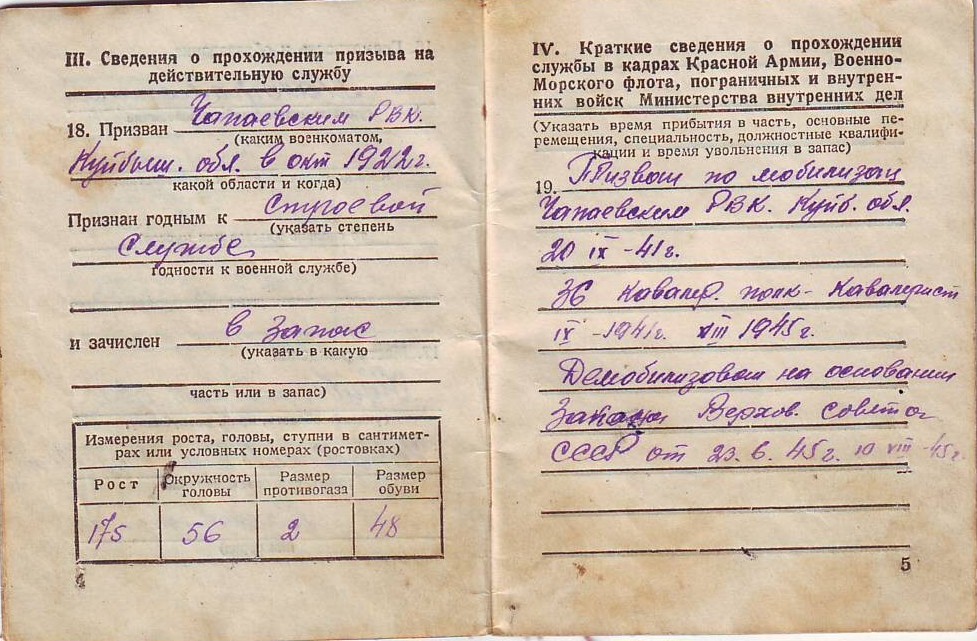 III. Сведения о прохождении призыва на
действительную службу
18. Призван Чапаевским РВК.
(каким военкоматом,
Куйбыш. обл. в окт 1922г.
какой области и когда)
Признан годным к Строевой
(указать степень
Службе
годности к военной службе)
и зачислен в Запас
(указать в какую
часть или в запас)
Измерения роста, головы, ступни в сантимет-
рах или условных номерах (ростовках)
Рост Окружность головы Размер противогаза Размер обуви
175 56 2 48
4
IV. Краткие сведения о прохождении
службы в кадрах Красной Армии, Военно-
Морского флота, пограничных и внутрен-
них войск Министерства внутренних дел
(Указать время прибытия в часть, основные пе-
ремещения, специальность, должностные квалифи-
кации и время увольнения в запас)
19. Призван по мобилизац
Чапаевским РВК. Куйб. обл.
20 IX -41г.
36 Кавалер. полк - Кавалерист
IX -1941г. VIII 1945г.
Демобилизован на основании
Закона Верхов. совета
СССР от 23.6.45г. 10 VIII -45г.
5